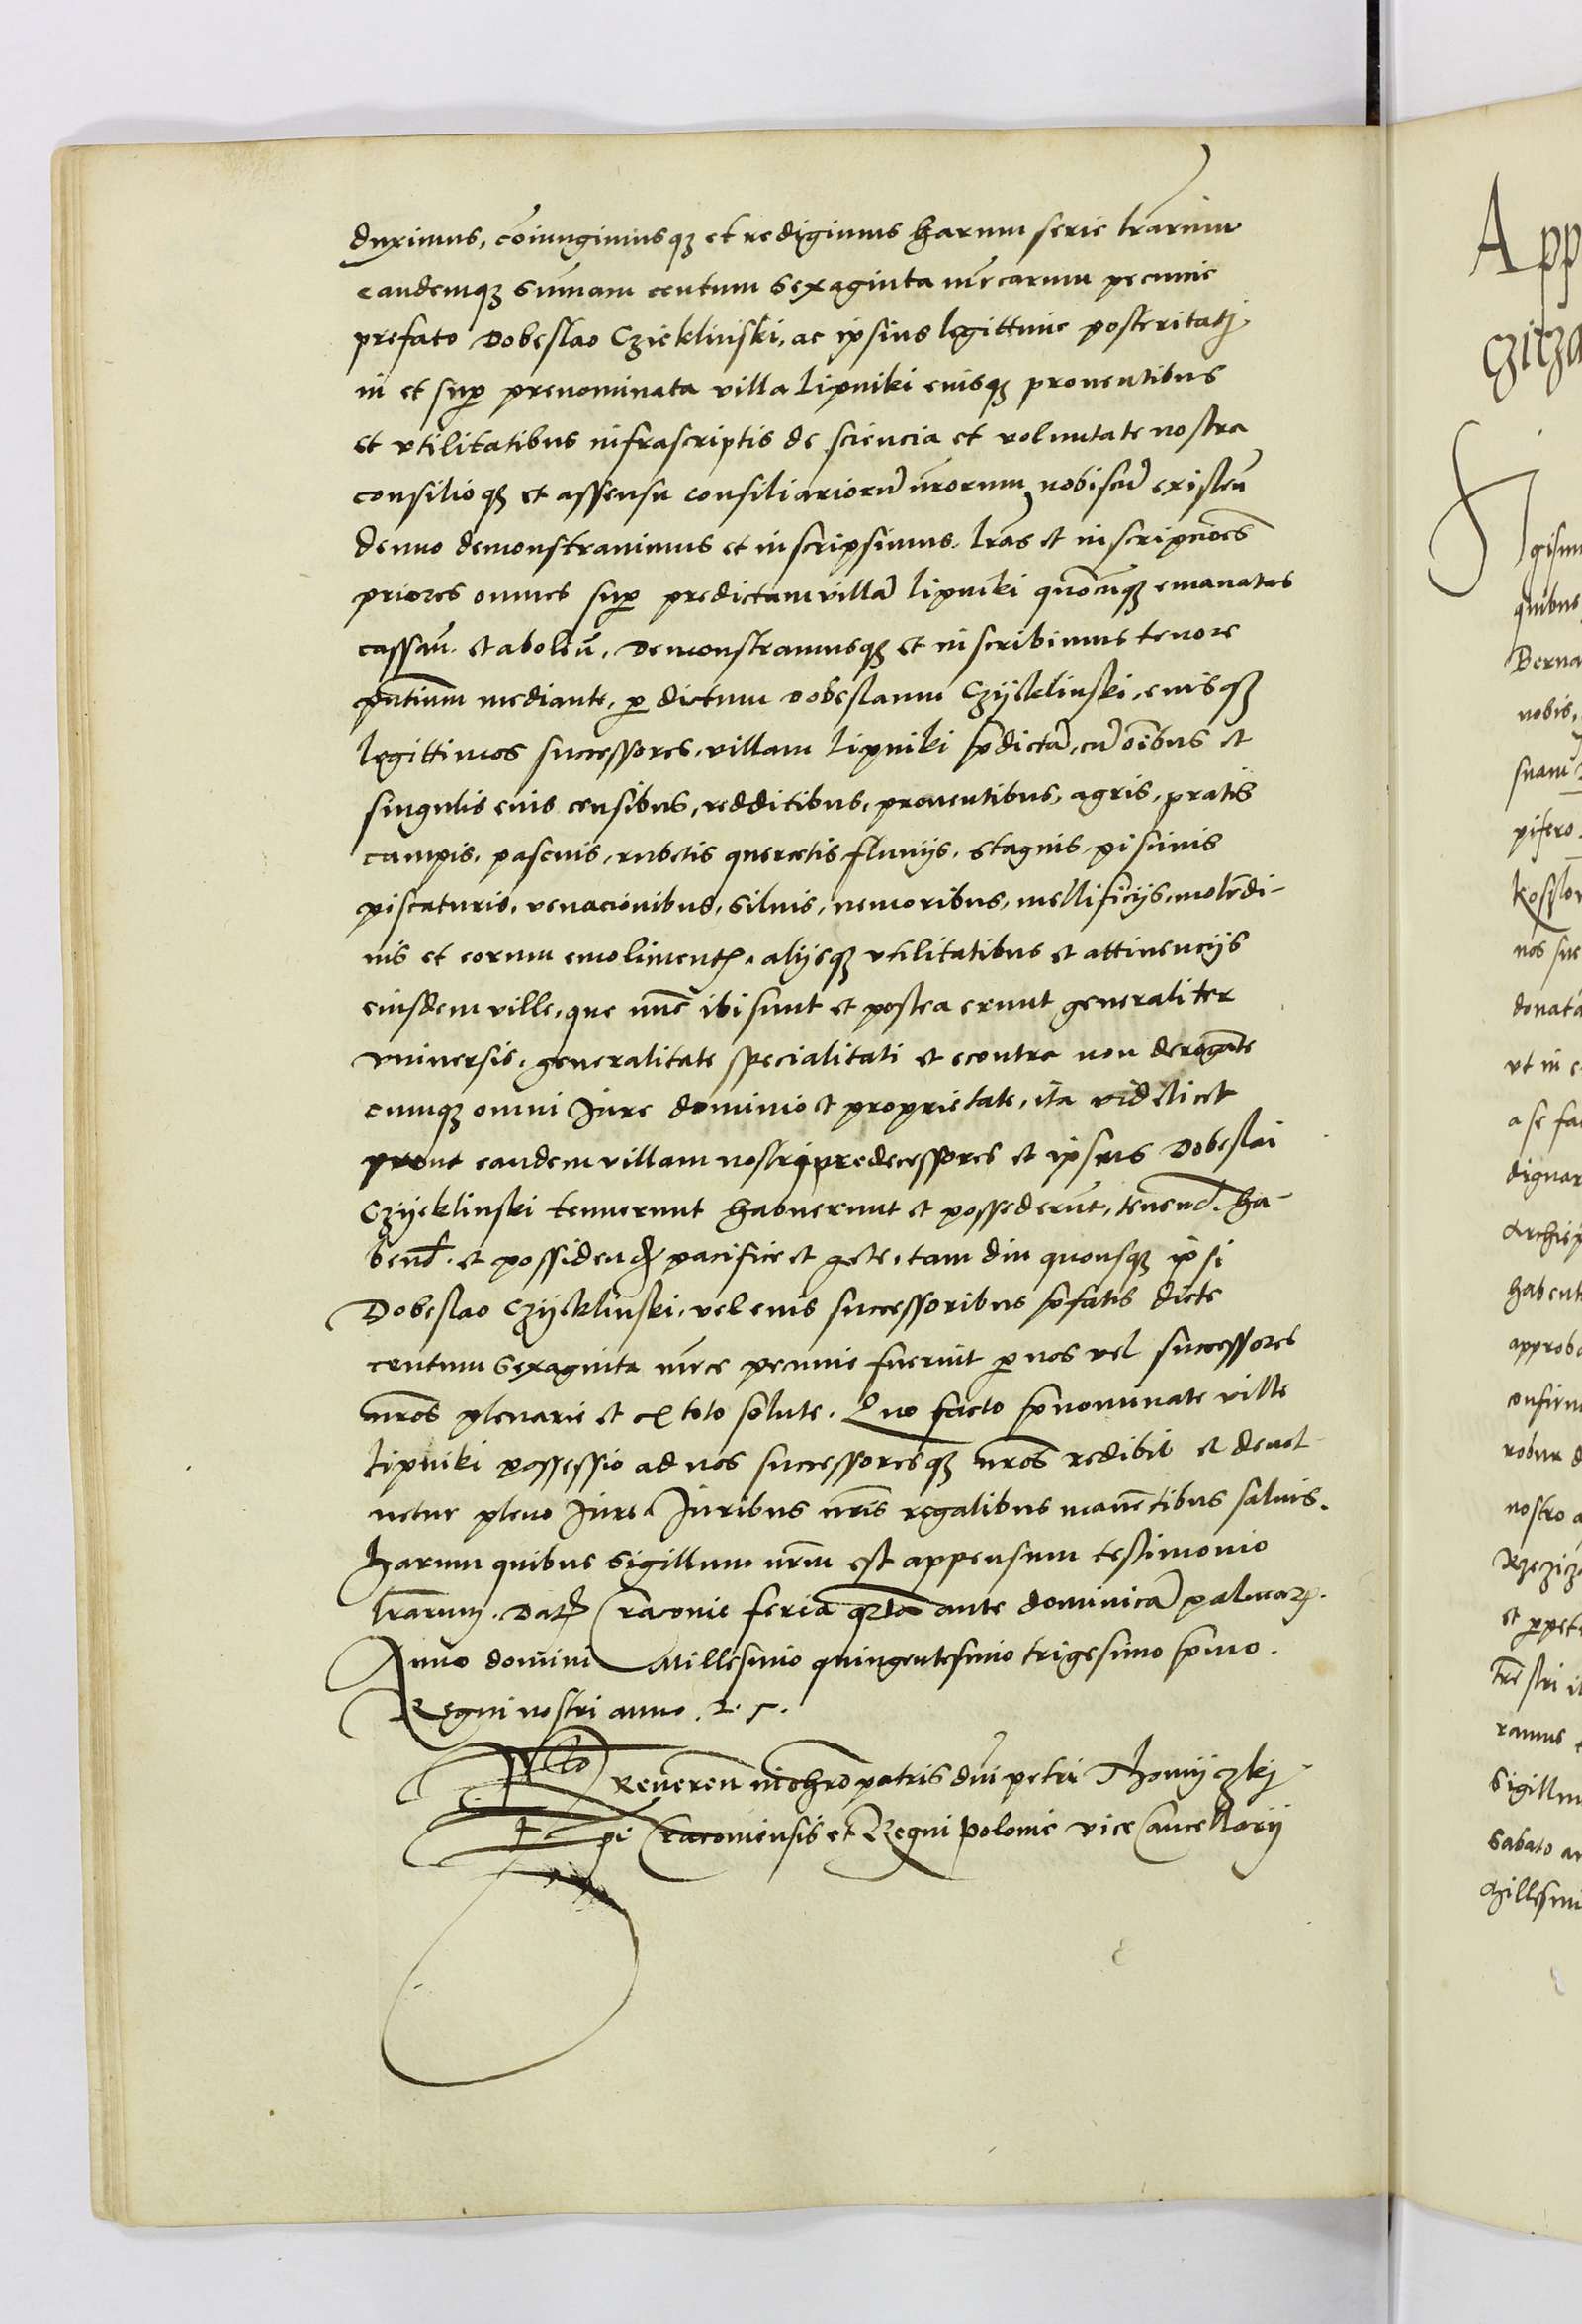 duximus, coniungimusq3 et redigimus harum serie lrarum
eandemq3 summam centum sexaginta mrcarum pecunie
prefato Dobeslao Czieklinski, ac ipsius legittime posteritatj
in et sup prenominata villa Lipniki eiusq3 prouentibus
et vtilitatibus infrascriptis de sciencia et voluntate nostra
consilioq3 et assensu consiliariorū nrorum, nobiscū existeñ
denuo demonstrauimus et inscripsimus. lras et inscripcioēs
priores omnes sup predictam villā Lipniki quocūq3 emanatas
cassañ. et aboleñ, Demonstramusq3 et inscribimus tenore
pntium mediante, p dictum Dobeslaum Czijeklinski, eiusq3
legittimos successores, villam Lipniki pdictā, cū oībus et
singulis eius censibus, redditibus, prouentibus, agris, pratis
campis, pascuis, rubetis quercetis fluuijs, stagnis, piscinis
piscaturis, venacionibus, siluis, nemoribus, mellificijs, molēdi-
nis et eorum emolimentꝭ, alijsq3 vtilitatibus et attinencijs
eiusdem ville, que nūc ibi sunt et postea erunt generaliter
vniuersis, generalitate specialitati et econtra non derogāte
cumq3 omni Jure dominio et proprietate, ita videlicet
prout eandem villam nostri predecessores et ipsius Dobeslai
Czijeklinski tenuerunt habuerunt et possederūt, tenend. ha-
bend. et possidendꝭ pacifice et qete, tam diu quousq3 ipsi
Dobeslao Czijeklinski, vel eius successoribus pfatis dicte
centum sexaginta mrce pecunie fuerint p nos vel successores
nros plenarie et ex toto solute. Quo facto pnominate ville
Lipniki possessio ad nos successoresq3 nros redibit et deuol
uetur pleno Jure, Juribus nris regalibus manētibus saluis.
Harum quibus sigillum nrm est appensum testimonio
lrarum. Datꝭ Cracouie feria qrta ante dominicā palmarꝝ.
Anno domini Millesimo quingentesimo trigesimo pmo.
Regni nostri anno. 25.
Rlo Reueren in chro patris dni petri Thomijczkj
Epi Cracouiensis et Regni Polonie vice Cancellarij
App
czicza
Sigism
quibus
Berna
nobis,
suam
pifero
Kosslow
nos sue
donata
vt in e
a se fac
dignar
Archiep
habent
approba
confirm
robur d
nostro a
Rzeczicz
et ppet
tre stri
ramus
Sigillum
Sabato an
Millesim